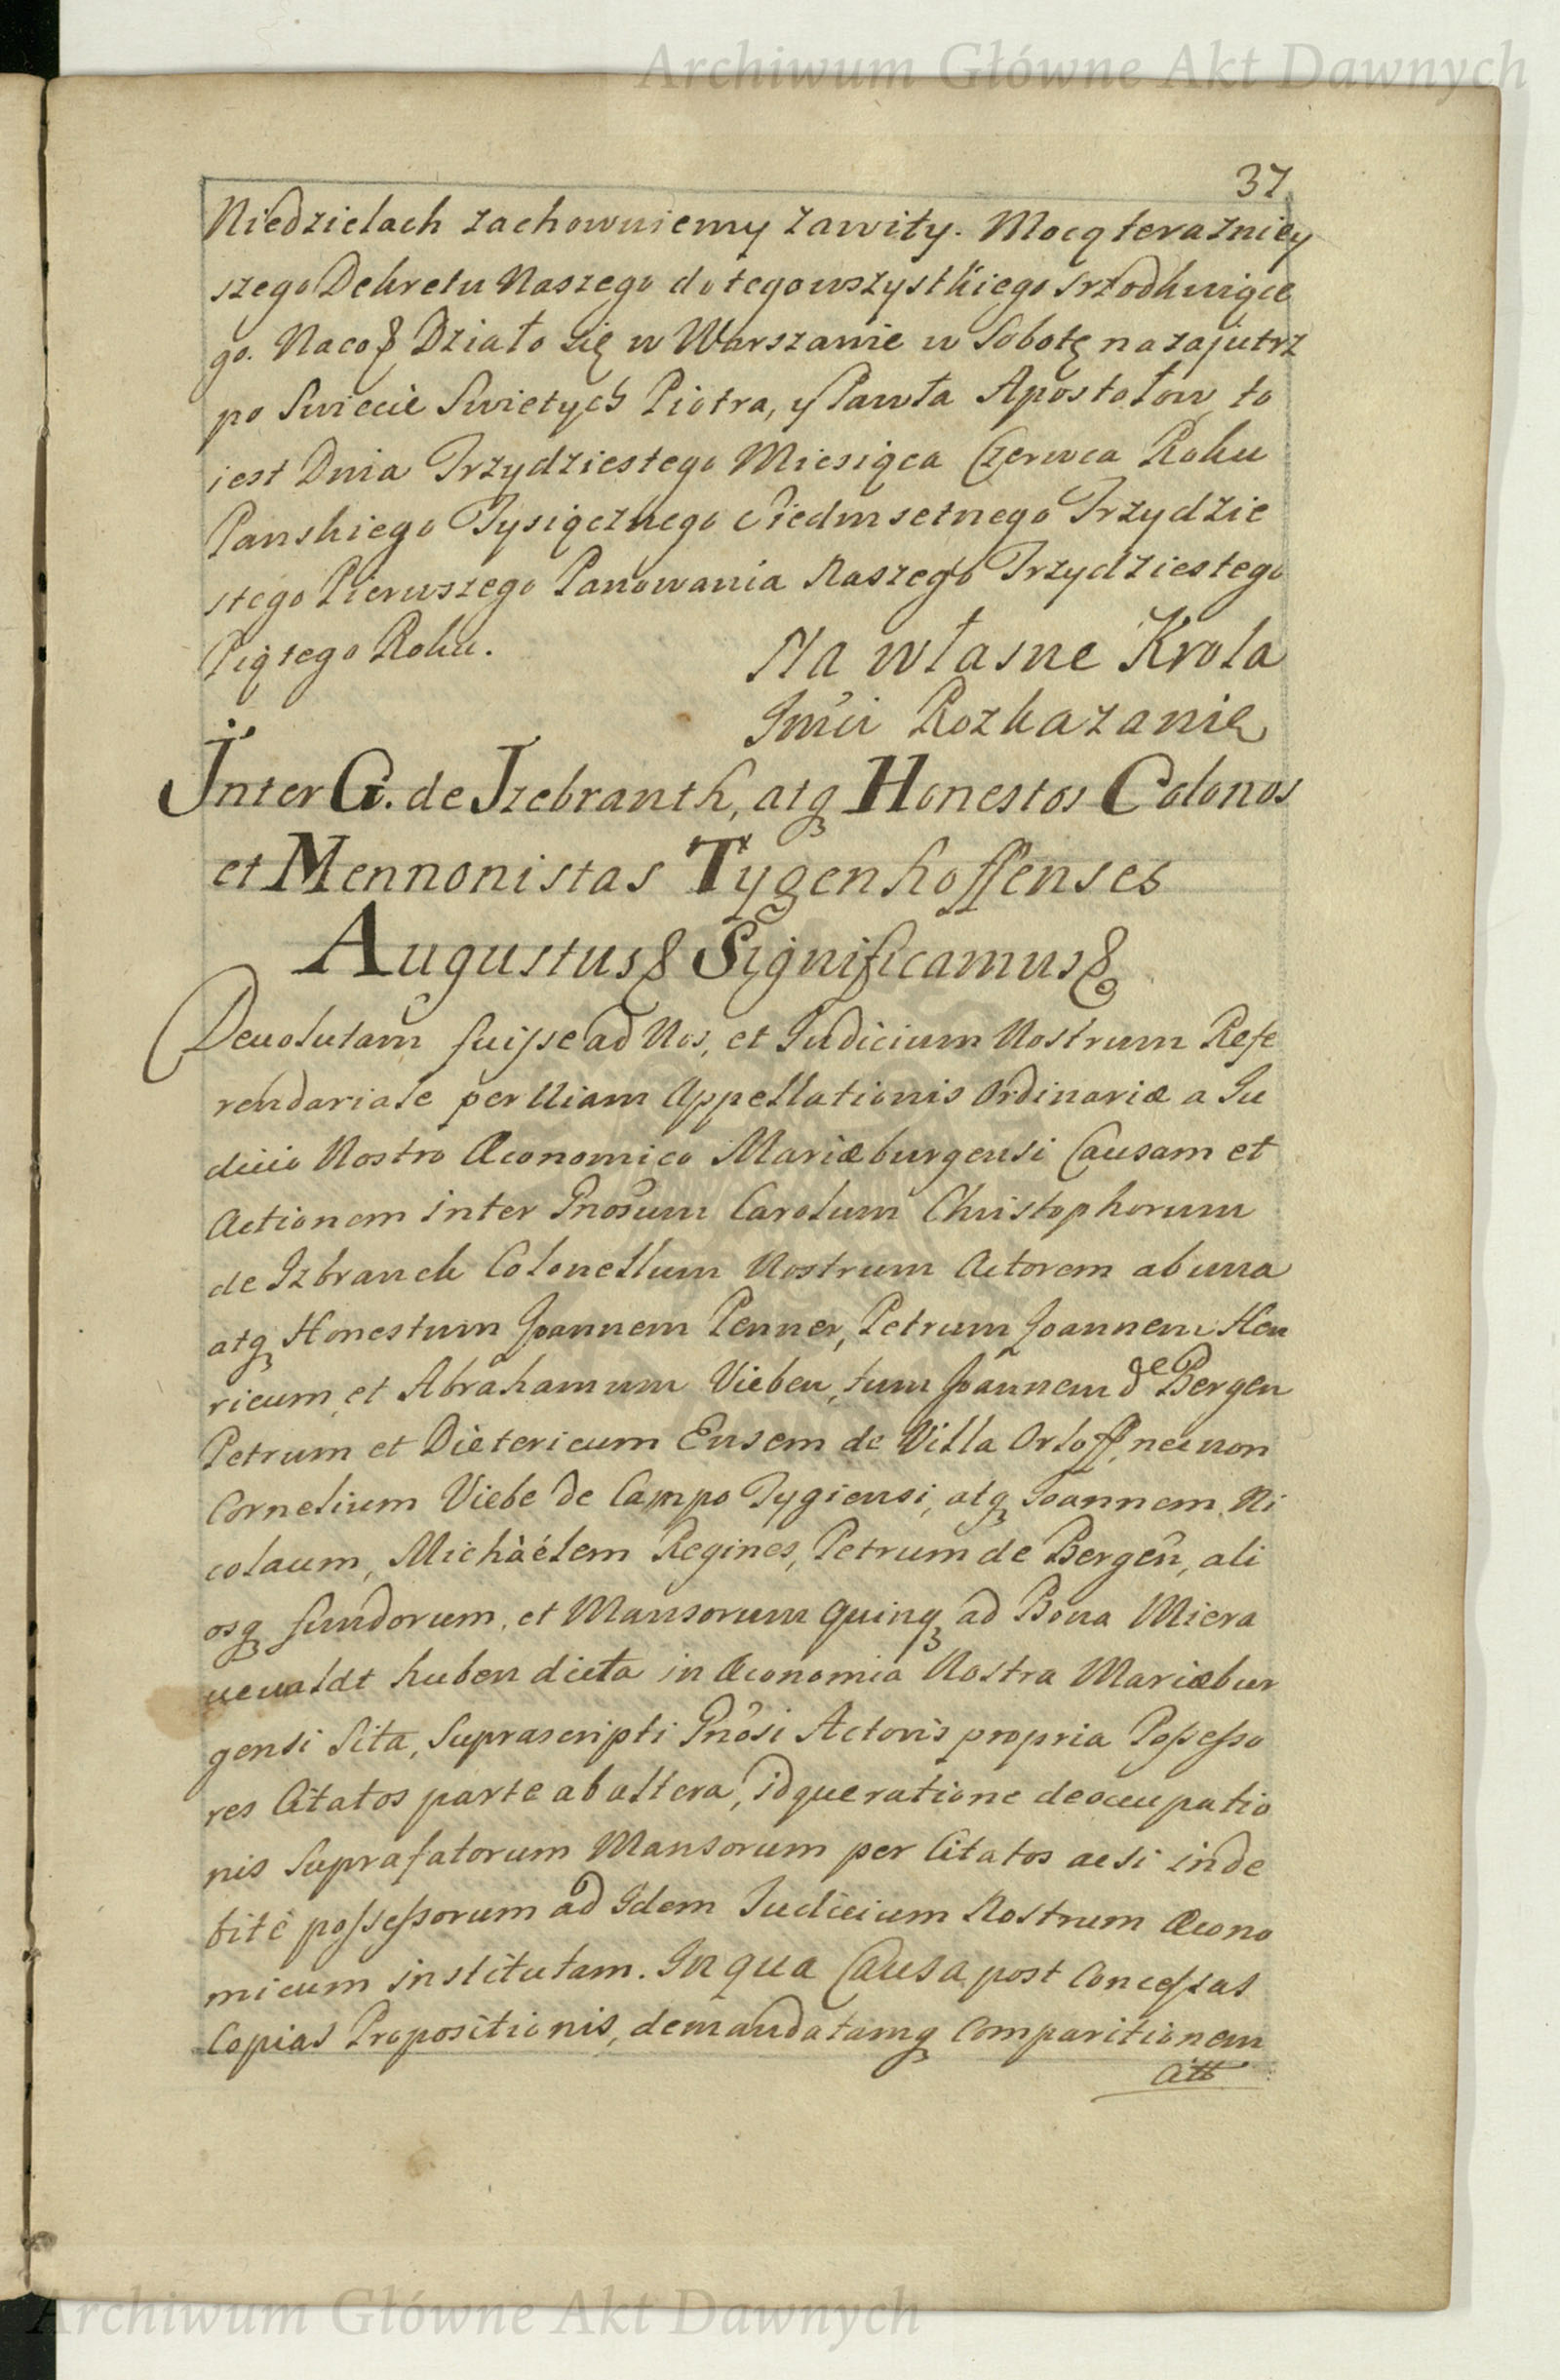 Archiwum Główne Akt Dawnych
37
Niedzielach zachowuiemy zawity. Mocą teraźniey
szego Dekretu Naszego do tego wszystkiego srzodkuiące
go. Naco & Działo się w Warszawie w Sobotę nazajutrz
po Swiecie Swietych Piotra, y Pawła Apostołow to
iest Dnia Trzydziestego Miesiąca Czerwca Roku
Panskiego Tysiącznego Siedmsetnego Trzydzie
stego Pierwszego Panowania Naszego Trzydziestego
Piątego Roku.
Na własne Krola
Jmći Rozkazanie
Inter G. de Jzebranth, atq Honestos Colonos
et Mennonistas Tygenhoffenses
Augustus & Significamus &
Deuolutam fuisse ad Nos, et Judicium Nostrum Refe
rendariale per Uiam Appellationis Ordinariæ a Ju
dicio Nostro Œconomico Mariæburgensi Causam et
Actionem inter Gnosum Carolum Christophorum
de Jzbrandt Colonellum Nostrum Actorem ab una
atq Honestum Joannem Penner, Petrum Joannem Hen
ricum et Abrahamum Vieben, tum Joannem de Bergen
Petrum et Dietericum Ensem de Villa Orloff, nec non
Cornelium Viebe de Campo Tygiensi, atq Joannem Ni
colaum, Michàélem Regines, Petrum de Bergen, ali
osq fundorum, et Mansorum quinq ad Bona Miera
ueualdt huben dicta in Œconomia Nostra Mariæbur
gensi Sita, Suprascripti Gnosi Actoris propria Possesso
res Citatos parte ab altera, idque ratione deoccupatio
nis Suprafatorum Mansorum per Citatos acsi inde
bitè possessorum ad Idem Judicium Nostrum Œcono
micum institutam. In qua Causa post Concessas
Copias Propositionis, demandatamq Comparitionem
att
Archiwum Główne Akt Dawnych